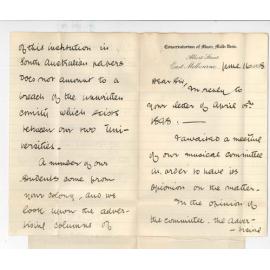 Conservatorium of Music, Melb. Univ.
Albert Street
East Melbourne, June
Dear Sir,
In reply to
your letter of April
1898.
I awaited a meeting
of our musical committee
in order to have its
opinion on the matter.
In the opinion of
the committee, the adver-
tising
of this institution in
South Australian papers
does not amount to a
breach of the unwritten
comity which exists
between our two Uni-
versities.
A number of our
students come from
your colony, and we
look upon the adver-
tising columns of